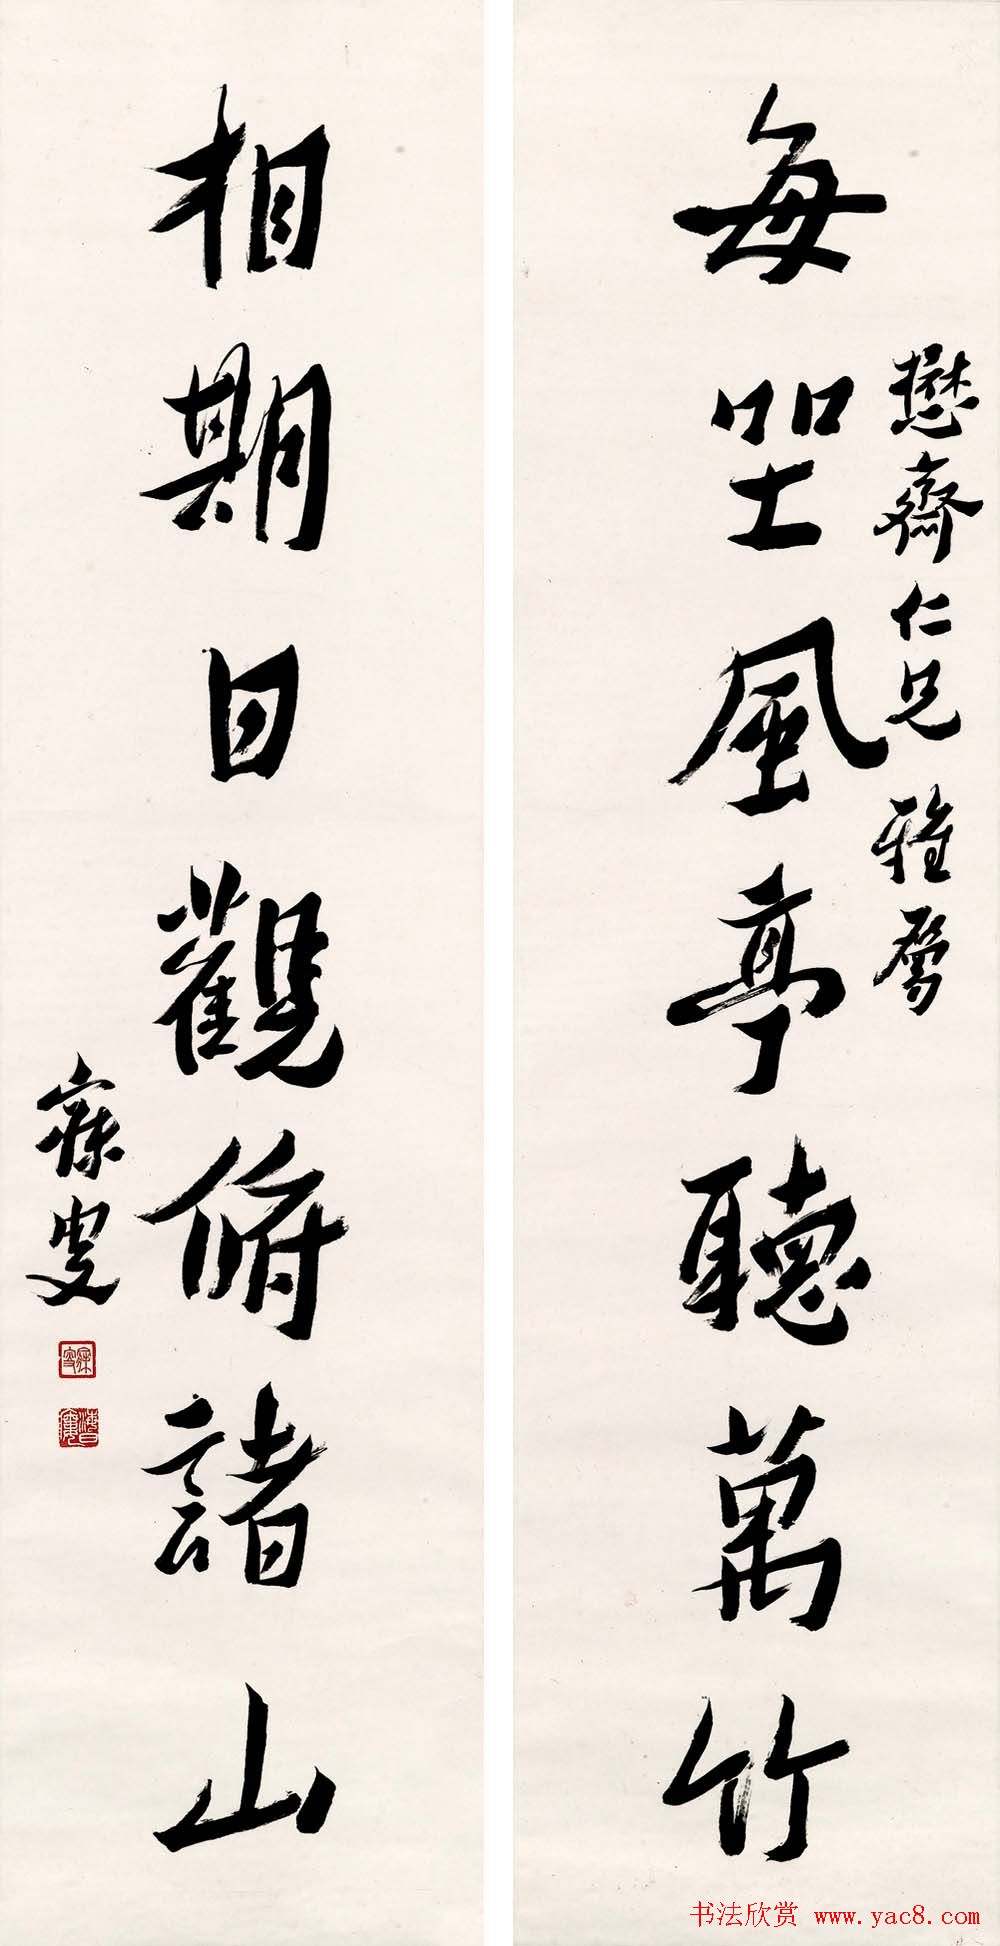 懋齋仁兄雅屬
每坐風亭聽萬竹
相期日觀俯諸山
寐叟
书法欣赏 www.yac8.com